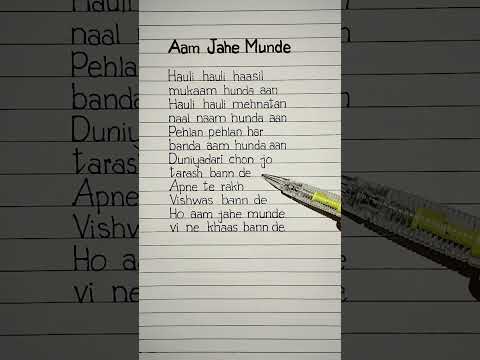 Aam Jahe Munde
Hauli hauli haasil
mukaam hunda aan
Hauli hauli mehnatan
naal naam hunda aan
Pehlan pehlan har
banda aam hunda aan
Duniyadari chon jo
tarash bann de
Apne te rakh
Vishwas bann de
Ho aam jahe munde
vi ne khaas bann de